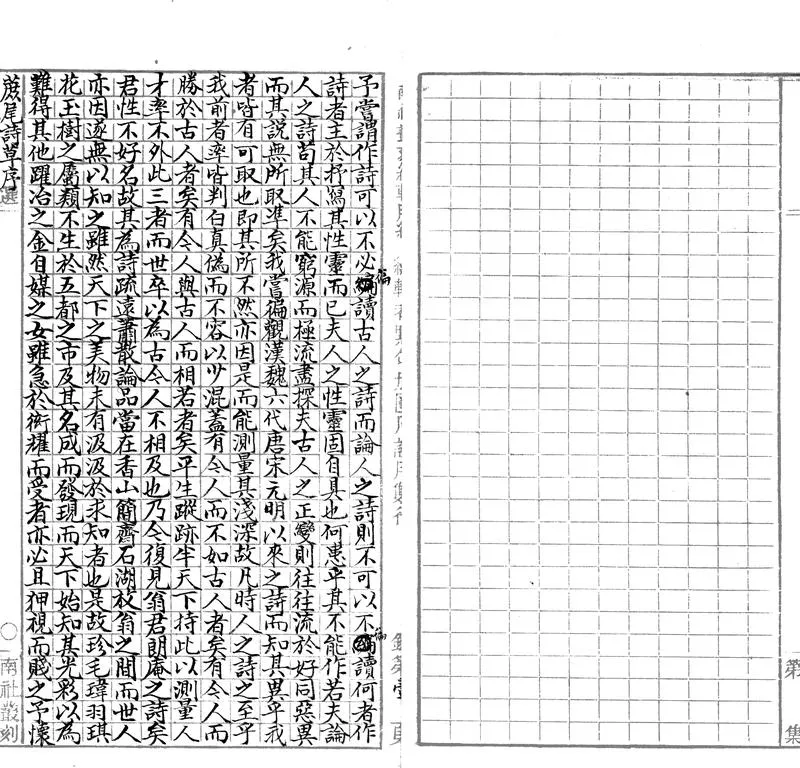 予嘗謂作詩可以不必徧讀古人之詩而論人之詩則不可以不徧讀何者作
詩者主於抒寫其性靈而已夫人之性靈固自具也何患乎其不能作若夫論
人之詩苟其人不能窮源而極流盡探夫古人之正變則往往流於好同惡異
而其說無所取準矣我嘗徧觀漢魏六代唐宋元明以來之詩而知其異乎我
者皆有可取也即其所不然亦因是而能測量其淺深故凡時人之詩之至乎
我前者率皆判白真偽而不容以少混蓋有今人而不如古人者矣有今人而
勝於古人者矣有今人與古人而相若者矣平生蹤跡半天下持此以測量人
才率不外此三者而世卒以為古今人不相及也乃今復見翁君朗庵之詩矣
君性不好名故其為詩疏遠蕭散論品當在香山簡齋石湖放翁之間而世人
亦因遂無以知之雖然天下之美物未有汲汲於求知者也是故珍毛瑋羽琪
花玉樹之屬類不生於五都之市及其名成而發現而天下始知其光彩以為
難得其他躍冶之金自媒之女雖急於衒耀而受者亦必且狎視而賤之予懷
蕿尾詩草序 選 〇 南社叢刻
第 集